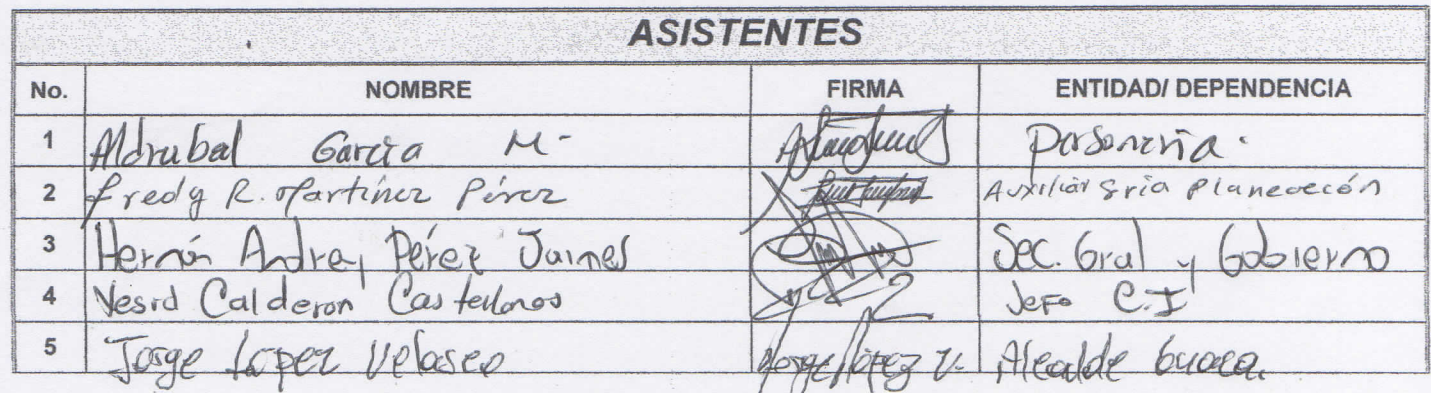 ASISTENTES
No. NOMBRE FIRMA ENTIDAD/ DEPENDENCIA
1 Aldrubal Garcia M. Personeria.
2 fredy R. Martinez Pérez Auxiliar Sria Planeación
3 Hernán Andrey Pérez Jaimes Sec. Gral y Gobierno
4 Yesid Calderon Castellanos Jefe C.I
5 Jorge López Velasco Jorge López V. Alcalde Guaca.